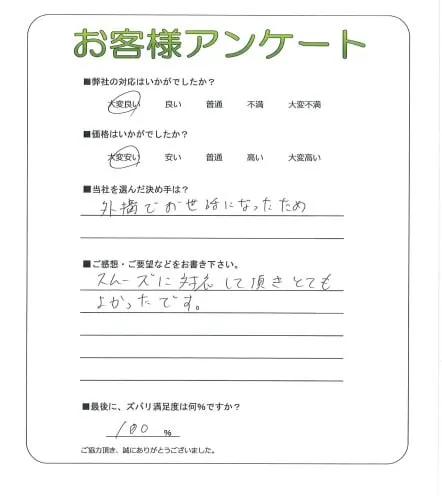 お客様アンケート
■弊社の対応はいかがでしたか？
大変良い 良い 普通 不満 大変不満
■価格はいかがでしたか？
大変安い 安い 普通 高い 大変高い
■当社を選んだ決め手は？
外構でお世話になったため
■ご感想・ご要望などをお書き下さい。
スムーズに対応して頂きとても
よかったです。
■最後に、ズバリ満足度は何％ですか？
100 %
ご協力頂き、誠にありがとうございました。